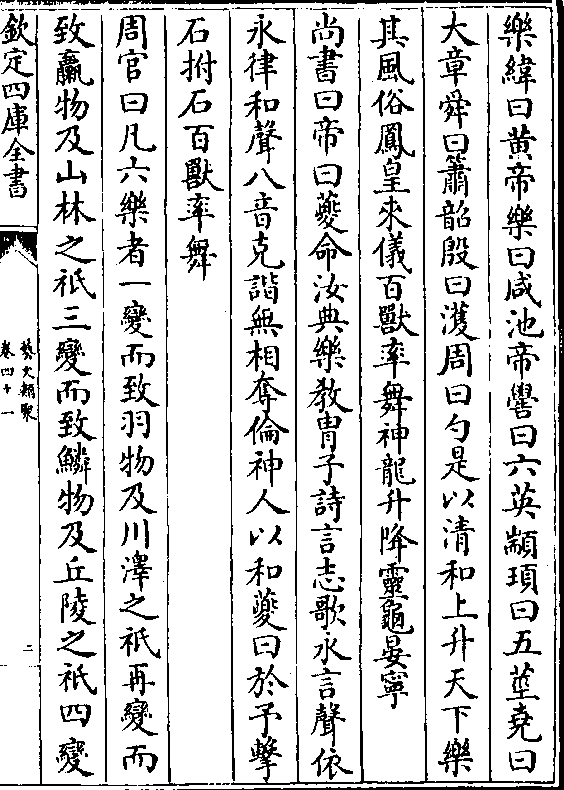 樂緯曰黄帝樂曰咸池帝嚳曰六英顓頊曰五莖堯曰
大章舜曰簫韶殷曰濩周曰勺是以清和上升天下樂
其風俗鳳皇來儀百獸率舞神龍升降靈龜晏寧
尚書曰帝曰夔命汝典樂教胄子詩言志歌永言聲依
永律和聲八音克諧無相奪倫神人以和夔曰於予擊
石拊石百獸率舞
周官曰凡六樂者一變而致羽物及川澤之祇再變而
致臝物及山林之祇三變而致鱗物及丘陵之祇四變
欽定四庫全書
藝文類聚
卷四十一
二